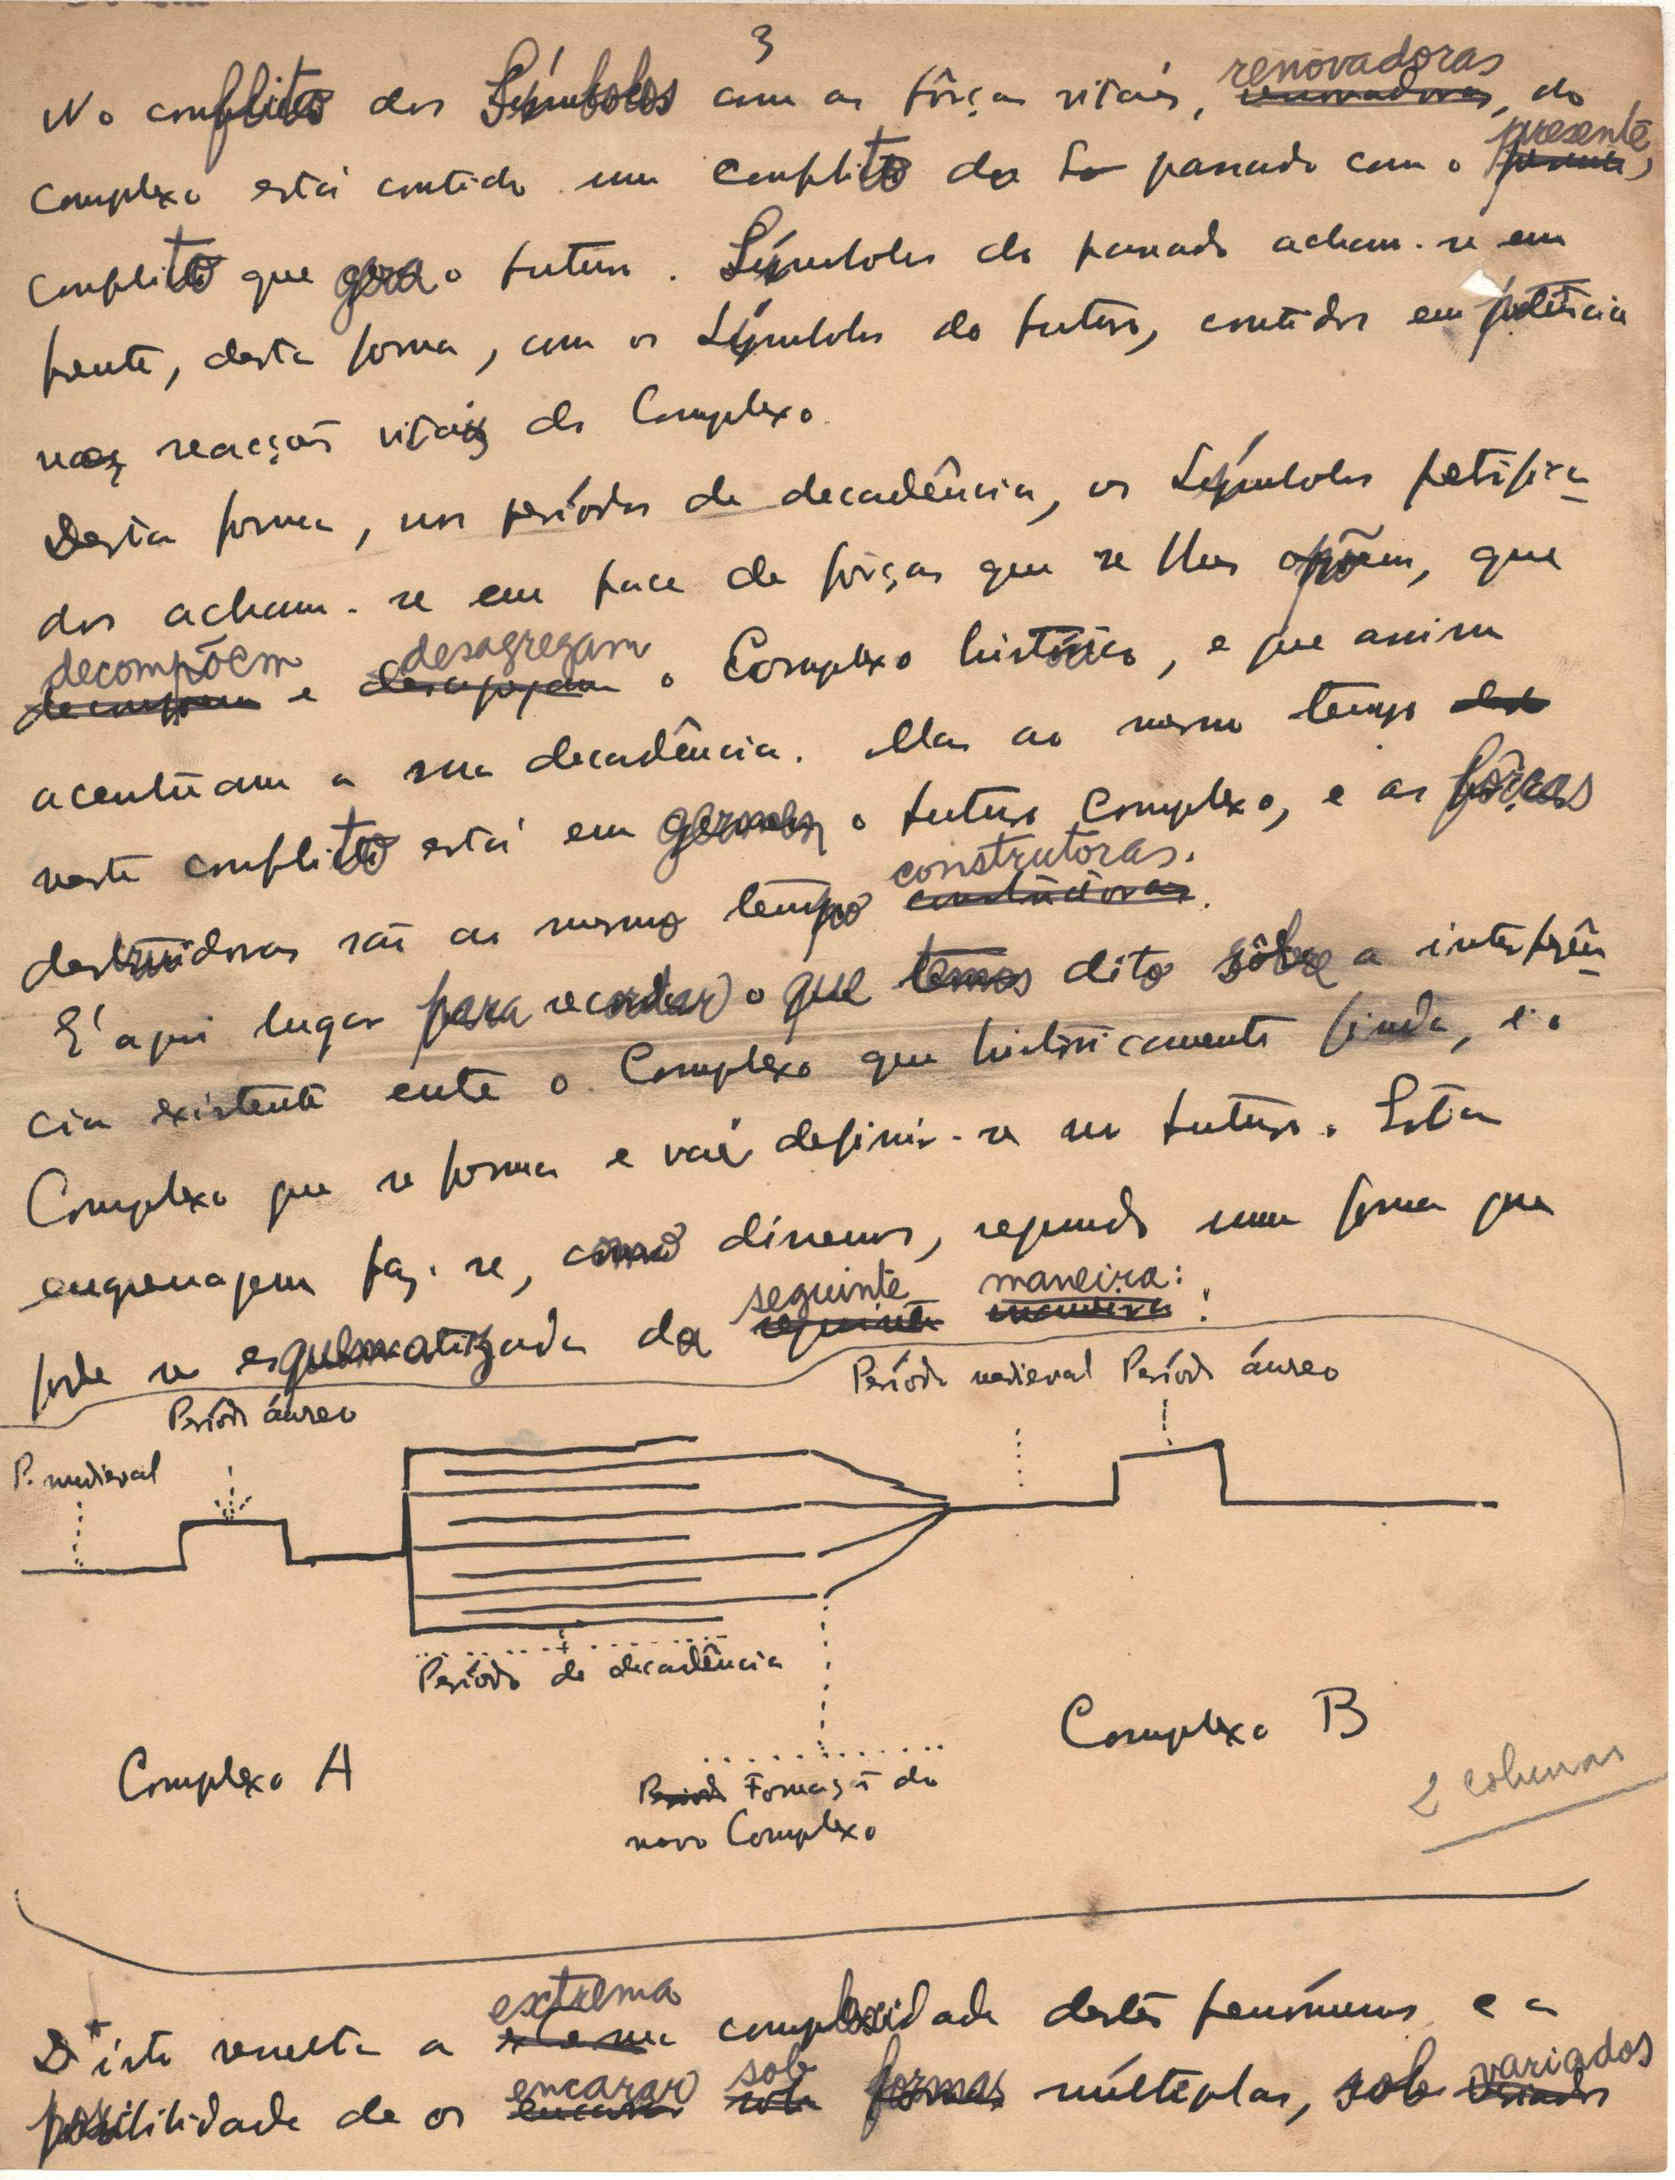 3
No conflito dos Símbolos com as fôrças vitais, renovadoras, do
Complexo está contido um conflito do passado com o presente,
conflito que gera o futuro. Símbolos do passado acham-se em
frente, desta forma, com os Símbolos do futuro, contidos em potência
nas reacções vitais do Complexo.
Desta forma, nos períodos de decadência, os Símbolos petrifica-
dos acham-se em face de fôrças que se lhes opõem, que
decompõem e desagregam o Complexo histórico, e que assim
acentuam a sua decadência. Mas ao mesmo tempo
neste conflito está em germen o futuro Complexo, e as fôrças
destruidoras são ao mesmo tempo construtoras.
É aqui lugar para recordar o que temos dito sôbre a interferên-
cia existente entre o Complexo que històricamente finda, e o
Complexo que se forma e vai definir-se no futuro. Esta
engrenagem faz-se, como dissemos, segundo uma forma que
pode ser esquematizada da seguinte maneira:
Período medieval Período áureo
Período áureo
P. medieval
Período de decadência
Complexo B
Complexo A
Formação do
novo Complexo
2 colunas
D'isto resulta a extrema complexidade destes fenómenos e a
possibilidade de os encarar sob formas múltiplas, sob variados